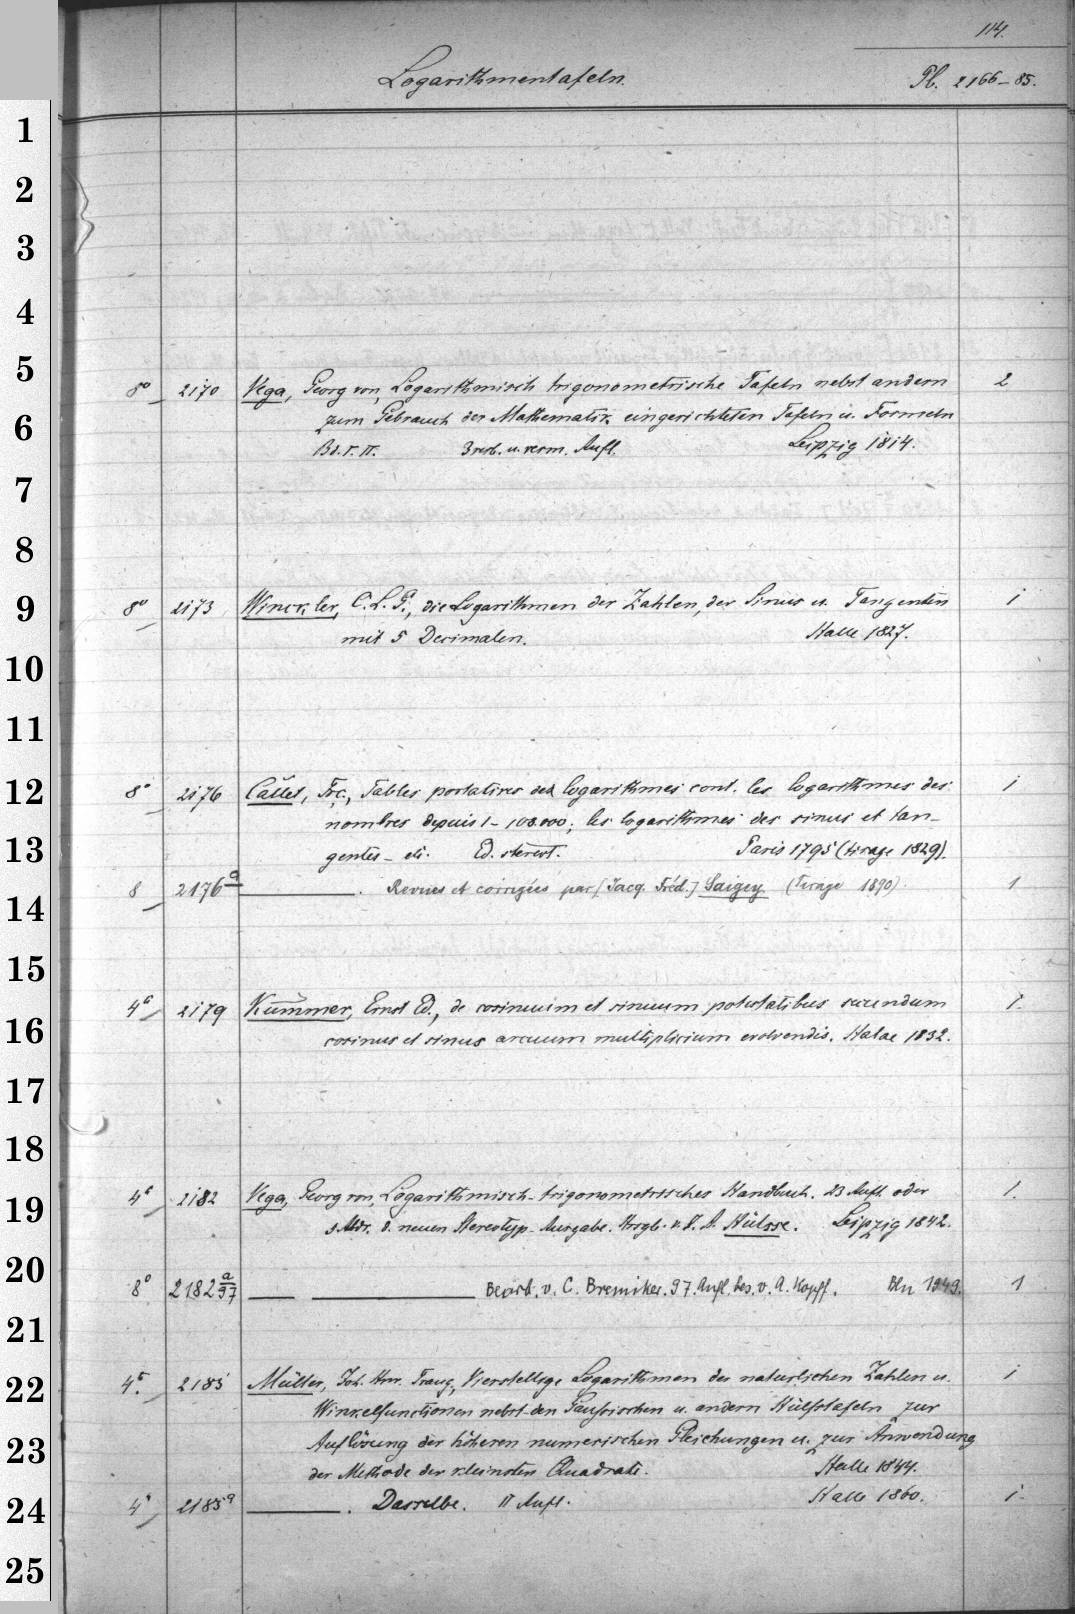 114.
Logarithmentafeln.
Pl. 2166–85.
1
2
3
4
5
8° 2170 Vega, Georg von, Logarithmisch trigonometrische Tafeln nebst andern 2
6
zum Gebrauch der Mathematik eingerichteten Tafeln u. Formeln
Bd. I. II. 3 verb. u. verm. Aufl. Leipzig 1814.
7
8
9
8° 2173 Winckler, C. L. G., die Logarithmen der Zahlen, der Sinus u. Tangenten 1
mit 5 Decimalen. Halle 1827.
10
11
12
8° 2176 Callet, Frç., Tables portatives des logarithmes cont. les logarithmes des 1
nombres depuis 1–108.000; les logarithmes des sinus et tan-
13
gentes – etc. Ed. stereot. Paris 1795 (tirage 1829).
8 2176a ———. Revues et corrigées par [Jacq. Fréd.] Saigey (Tirage 1890). 1
14
15
4° 2179 Kummer, Ernst Ed., de cosinuum et sinuum potestatibus secundum 1.
16
cosinus et sinus arcuum multiplicium evolvendis. Halae 1832.
17
18
19
4° 2182 Vega, Georg von, Logarithmisch-trigonometrisches Handbuch. 23 Aufl. oder 1.
s. Abdr. d. neuen Stereotyp-Ausgabe. Hrsgb. v. J. A. Hülsse. Leipzig 1842.
20
8° 2182 a/97 —— ——— Bearb. v. C. Bremiker. 97. Aufl. bes. v. A. Kopff. Bln 1949. 1
21
22
4°. 2185 Müller, Joh. Hnr. Traug., Vierstellige Logarithmen der natürlichen Zahlen u. 1
Winkelfunctionen nebst den Gaussischen u. andern Hülfstafeln zur
23
Auflösung der höheren numerischen Gleichungen u. zur Anwendung
der Methode der kleinsten Quadrate. Halle 1844.
24
4° 2185a ———. Dasselbe. II Aufl. Halle 1860. 1.
25